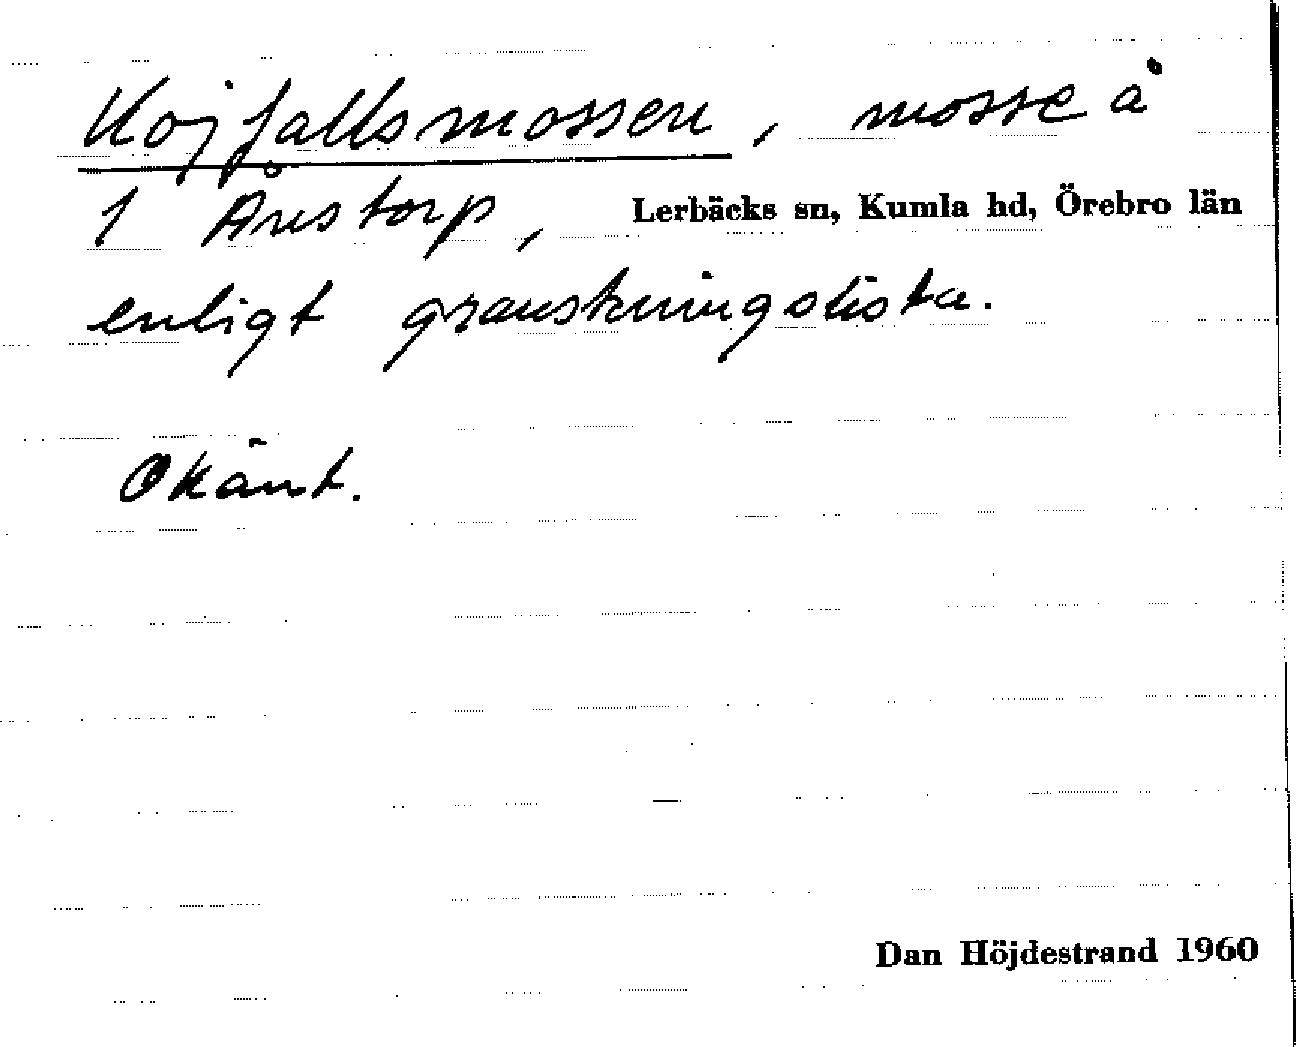 Kojfallsmossen, mosse å
1 Åvstorp, Lerbäcks sn, Kumla hd, Örebro län
enligt granskningslista.
Okänt.
Dan Höjdestrand 1960